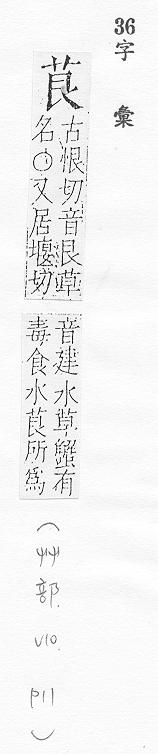 36
字彙
茛
古恨切音艮草
名〇又居堰切
音建水草蟹有
毒食水茛所為
(艸部. V10. P11)